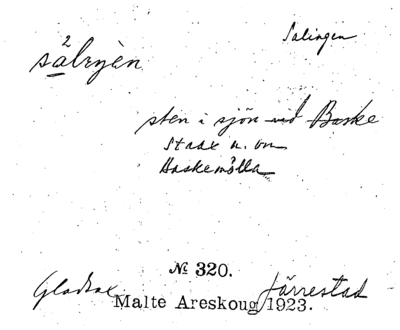 Salingen
sten i sjön vid Baske
strax n. om
Baskemölla
№ 320.
Gladsax Järrestad
Malte Areskoug 1923.